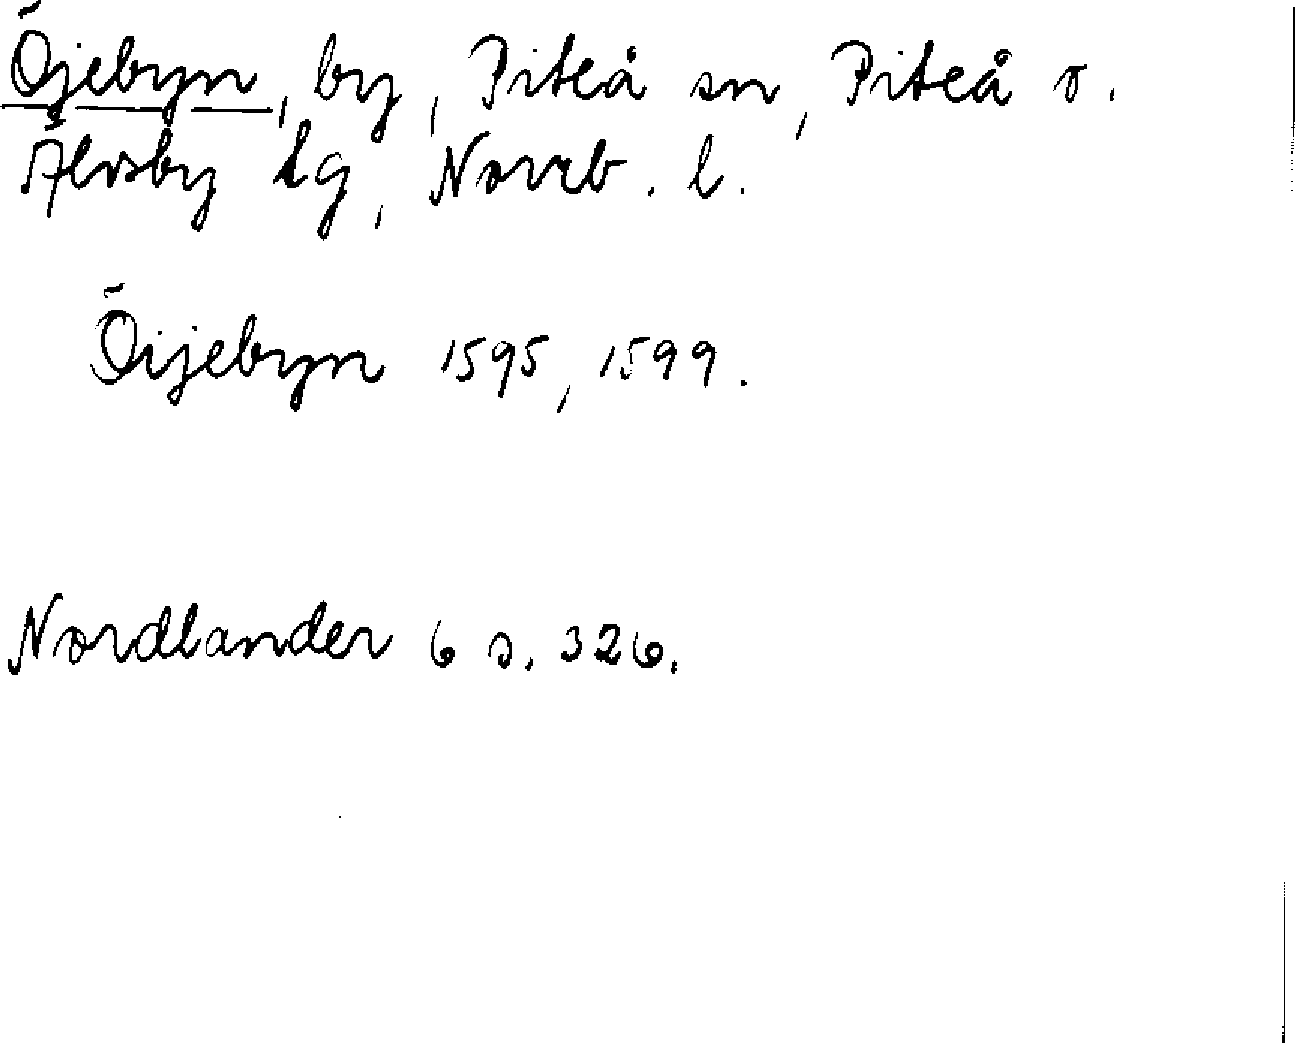 Öjebyn, by, Piteå sn, Piteå o.
Älvsby tg, Norrb. l.
Öijebyn 1595, 1599.
Nordlander 6 s. 326.